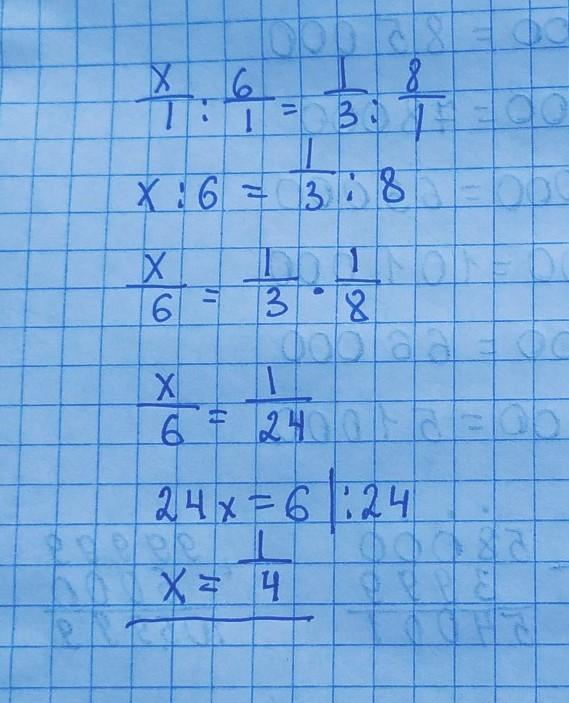 x/1 : 6/1 = 1/3 : 8/1
x : 6 = 1/3 : 8
x/6 = 1/3 · 1/8
x/6 = 1/24
24x = 6 | : 24
x = 1/4